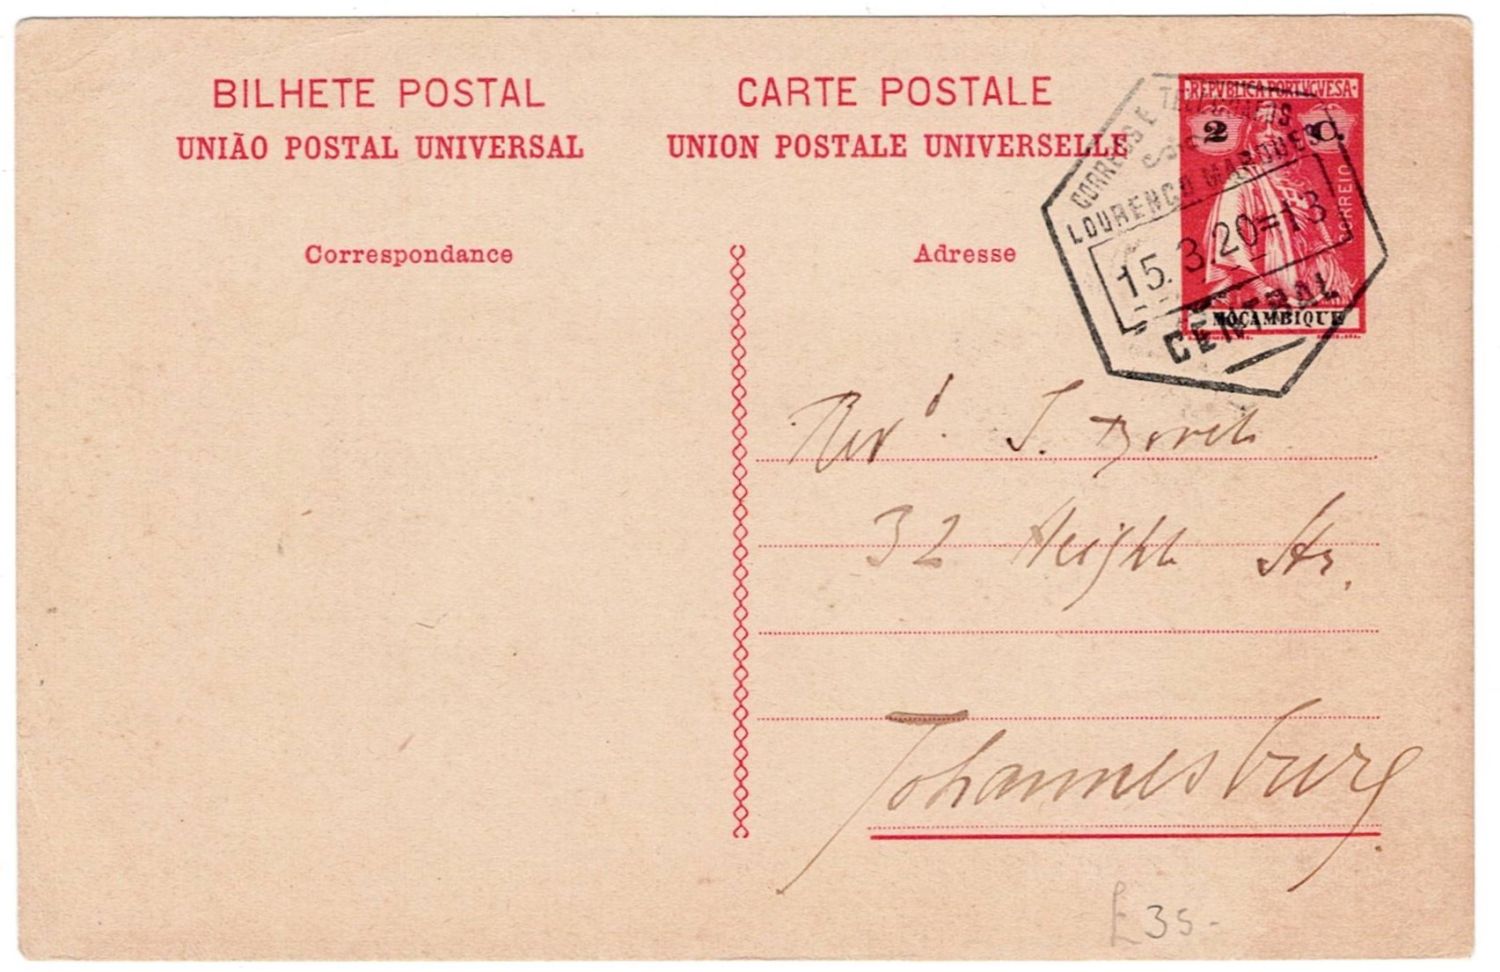 BILHETE POSTAL
UNIÃO POSTAL UNIVERSAL
CARTE POSTALE
UNION POSTALE UNIVERSELLE
Correspondance
Adresse
REPVBLICA PORTVGVESA
2 C.
CORREIO
MOÇAMBIQUE
CORREIOS E TELEGRAFOS
LOURENÇO MARQUES
15.3.20=13
CENTRAL
Revd. J.
32 Height Str.
Johannesburg
£35-